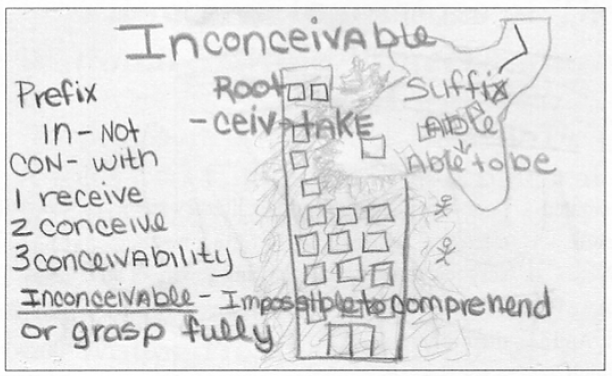 InconceivAble
Prefix
In - Not
CON - with
1 receive
2 conceive
3 conceivAbility
Root
- ceiv → tAKE
Suffix
Able
Able to be
InconceivAble - Impossible to comprehend
or grasp fully